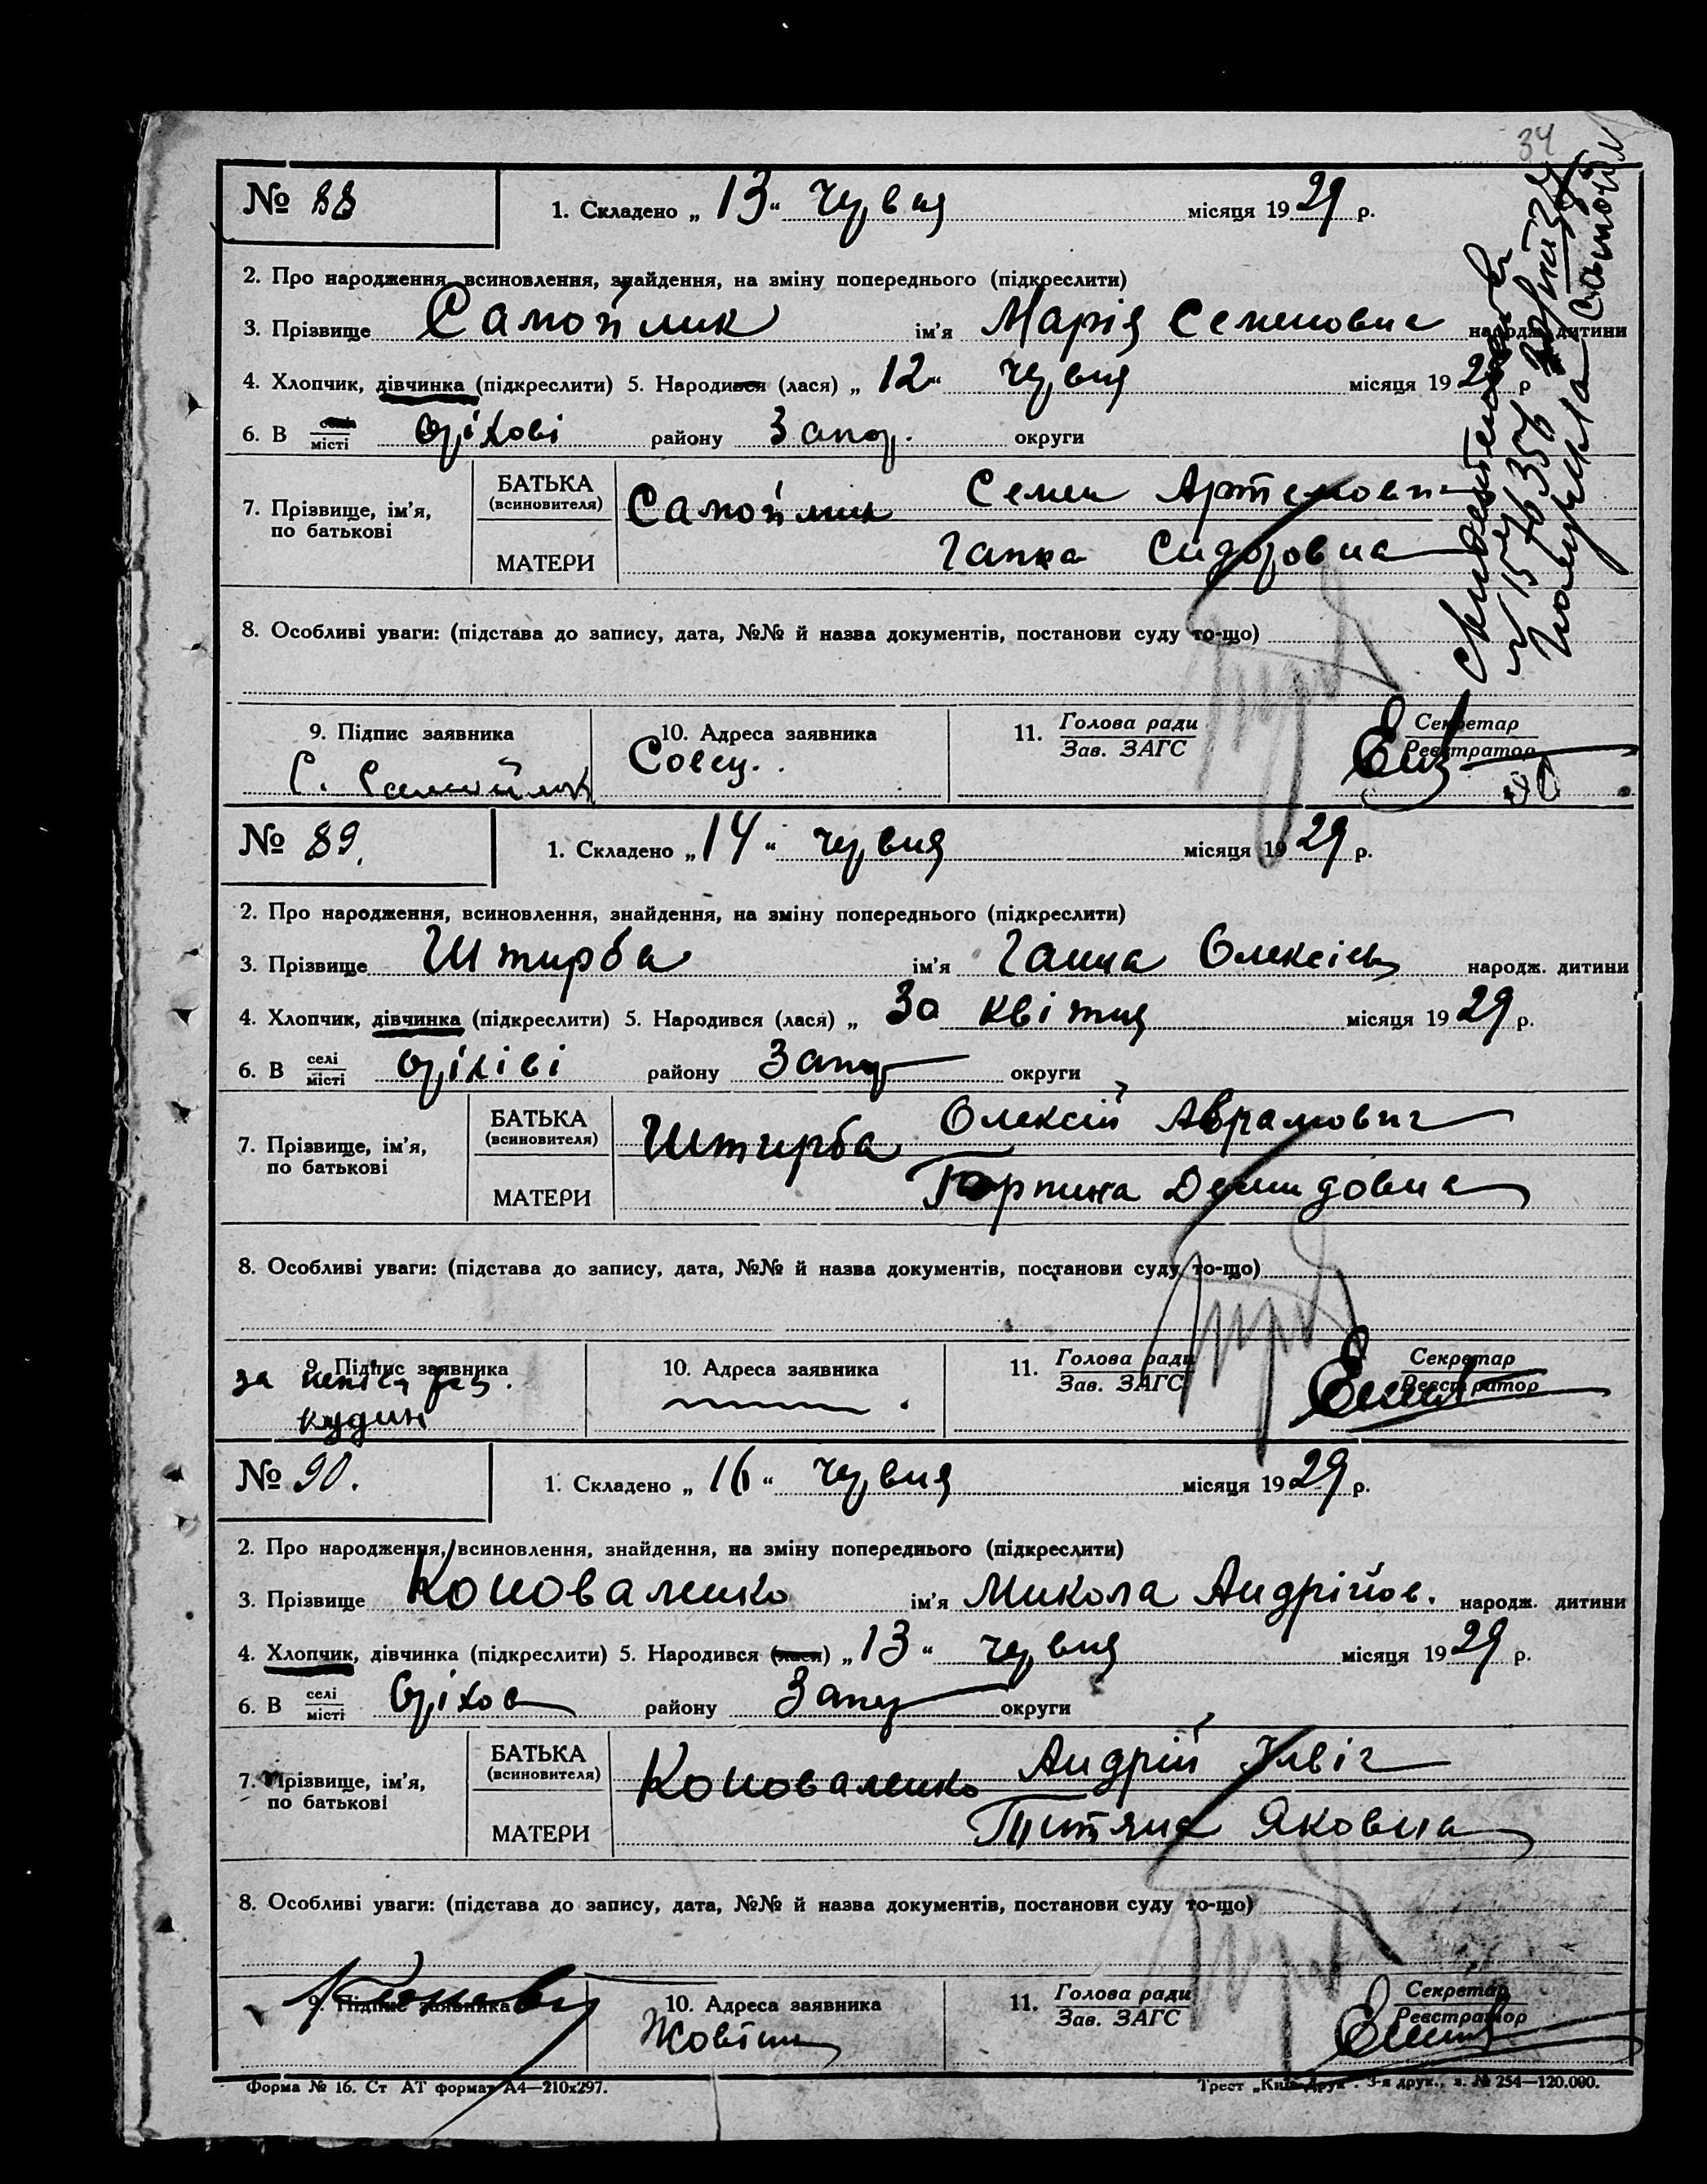 34
№ 88
1. Складено „ 13 “ червня місяця 1929 р.
2. Про народження, всиновлення, знайдення, на зміну попереднього (підкреслити)
3. Прізвище Самойлик ім'я Марія Семеновна народж. дитини
4. Хлопчик, дівчинка (підкреслити) 5. Народився (лася) „ 12 “ червня місяця 1929 р
6. В селі місті Оріхові району Запор. округи
7. Прізвище, ім'я, по батькові
БАТЬКА (всиновителя) Самойлик Семен Артемович
МАТЕРИ Гапка Сидоровна
8. Особливі уваги: (підстава до запису, дата, №№ й назва документів, постанови суду то-що)
9. Підпис заявника
С. Самойлик
10. Адреса заявника
Совец.
11. Голова ради Зав. ЗАГС
Секретар Реєстратор
№ 89.
1. Складено „ 14 “ червня місяця 1929 р.
2. Про народження, всиновлення, знайдення, на зміну попереднього (підкреслити)
3. Прізвище Штирба ім'я Ганна Олексієв народж. дитини
4. Хлопчик, дівчинка (підкреслити) 5. Народився (лася) „ 30 квітня місяця 1929 р.
6. В селі місті Оріхіві району Запор округи
7. Прізвище, ім'я, по батькові
БАТЬКА (всиновителя) Штирба Олексій Аврамович
МАТЕРИ Горпина Демидовна
8. Особливі уваги: (підстава до запису, дата, №№ й назва документів, постанови суду то-що)
9. Підпис заявника
за
10. Адреса заявника
11. Голова ради Зав. ЗАГС
Секретар Реєстратор
№ 90.
1. Складено „ 16 “ червня місяця 1929 р.
2. Про народження, всиновлення, знайдення, на зміну попереднього (підкреслити)
3. Прізвище Коноваленко ім'я Микола Андрійов. народж. дитини
4. Хлопчик, дівчинка (підкреслити) 5. Народився (лася) „ 13 “ червня місяця 1929 р.
6. В селі місті Оріхов району Запор округи
7. Прізвище, ім'я, по батькові
БАТЬКА (всиновителя) Коноваленко Андрій
МАТЕРИ Титяна Яковна
8. Особливі уваги: (підстава до запису, дата, №№ й назва документів, постанови суду то-що)
9. Підпис заявника
10. Адреса заявника
11. Голова ради Зав. ЗАГС
Секретар Реєстратор
Форма № 16. Ст АТ формат А4—210х297.
Трест „Київ-Друк“. 3-я друк., з. № 254—120.000.